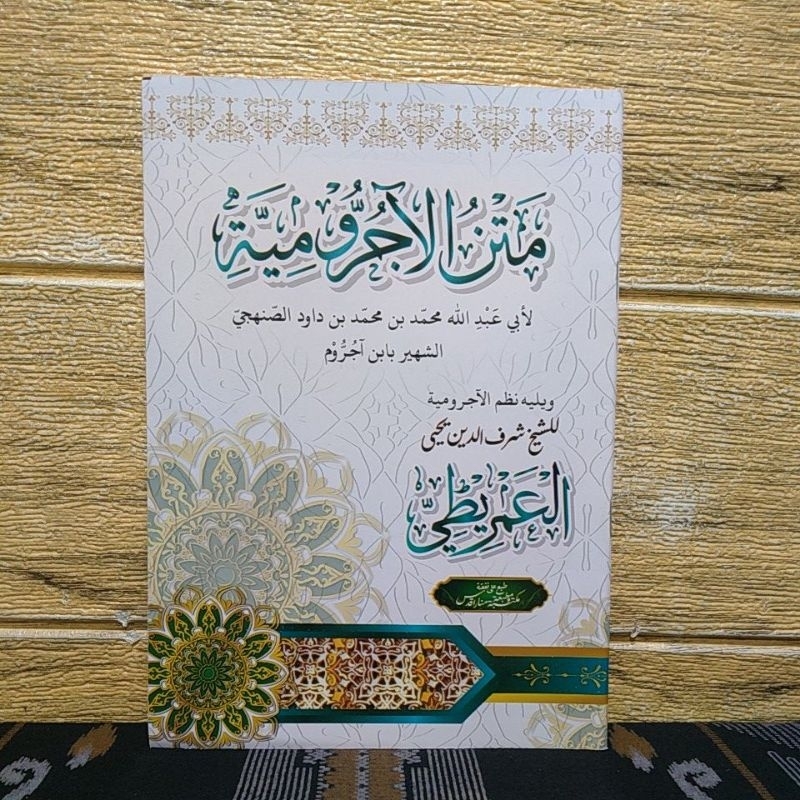 مَتْنُ الْآجُرُّومِيَّةِ
لأبي عَبْدِ الله محمّد بن محمّد بن داود الصّنهجيّ
الشهير بابن آجُرُّوْم
ويليه نظم الآجرومية
للشيخ شرف الدين يحيى
العَمْرِيطِيّ
طبع على نفقة